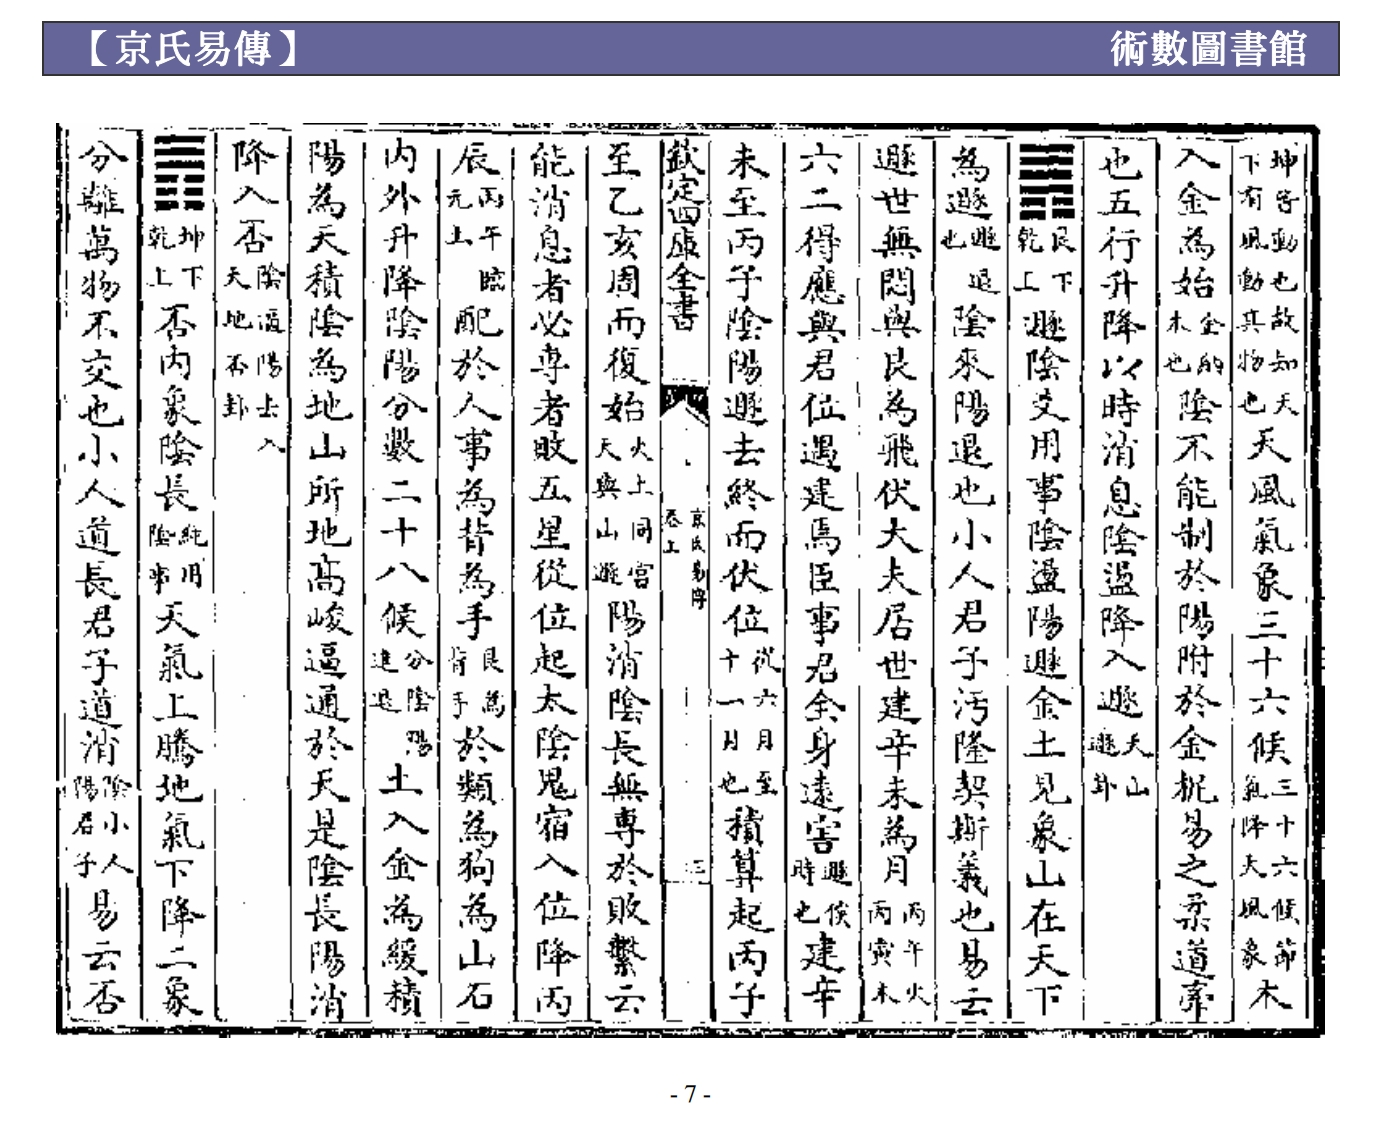 【京氏易傳】 術數圖書館
坤皆動也故知天下有風動其物也天風氣象三十六候三十六候節氣降大風象木
入金為始金納木也陰不能制於陽附於金柅易之柔道牽
也五行升降以時消息陰盪降入遯天山遯卦
艮下乾上遯陰爻用事陰盪陽遯金土見象山在天下
為遯遯退也陰來陽退也小人君子汚隆契斯義也易云
遯世無悶與艮為飛伏大夫居世建辛未為月丙午火丙寅木
六二得應與君位遇建焉臣事君全身遠害遯俟時也建辛
未至丙子陰陽遯去終而伏位從六月至十一月也積算起丙子
欽定四庫全書 京氏易傳 卷上 三
至乙亥周而復始火土同宮天與山遯陽消陰長無專於敗繫云
能消息者必專者敗五星從位起太陰鬼宿入位降丙
辰丙午臨元士配於人事為背為手艮為背手於類為狗為山石
内外升降陰陽分數二十八候分陰陽進退土入金為緩積
陽為天積陰為地山所地高峻逼通於天是陰長陽消
降入否陰逼陽去入天地否卦
坤下乾上否内象陰長純用陰事天氣上騰地氣下降二象
分離萬物不交也小人道長君子道消陰小人陽君子易云否
- 7 -